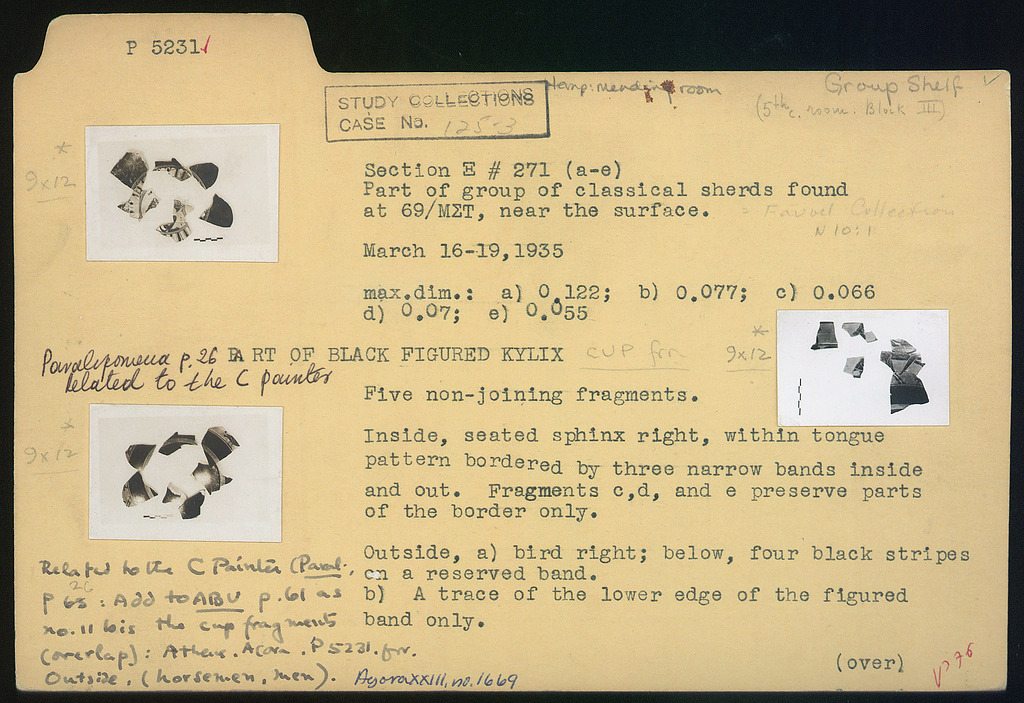 P 5231
STUDY COLLECTIONS
CASE No. 125-3
temp: mending room
Group Shelf
(5th c. room. Block III)
*
9x12
Section E # 271 (a-e)
Part of group of classical sherds found
at 69/ΜΣΤ, near the surface.
= Collection
N 10:1
March 16-19,1935
max.dim.: a) 0.122; b) 0.077; c) 0.066
d) 0.07; e) 0.055
*
9x12
Paralipomena p. 26
Related to the C painter
PART OF BLACK FIGURED KYLIX
CUP frr
Five non-joining fragments.
*
9x12
Inside, seated sphinx right, within tongue
pattern bordered by three narrow bands inside
and out. Fragments c,d, and e preserve parts
of the border only.
Outside, a) bird right; below, four black stripes
on a reserved band.
b) A trace of the lower edge of the figured
band only.
(over)
Related to the C Painter (Paral.,
26
p 65 : Add to ABV p. 61 as
no. 11 bis the cup fragments
(overlap): Athens. Agora. P 5231. frr.
Outside, (horsemen, men).
Agora XXIII, no. 1669
76